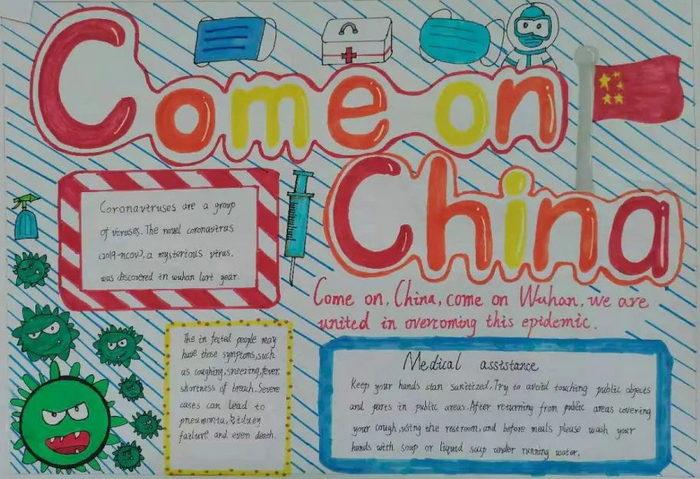 Come on
China
Coronaviruses are a group
of viruses. The novel coronavirus
(2019-nCoV), a mysterious virus,
was discovered in wuhan last year.
Come on, China, come on Wuhan, we are
united in overcoming this epidemic.
The in fected people may
have these symptoms, such
as coughing, sneezing, fever,
shortness of breath. Severe
cases can lead to
pneumonia, kidney
failure and even death.
Medical assistance
Keep your hands sanitized. Try to avoid touching public objects
and parts in public areas. After returning from public areas covering
your cough, using the restroom, and before meals please wash your
hands with soap or liquid soap under running water.